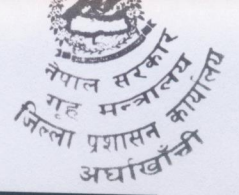 नेपाल सरकार
गृह मन्त्रालय
जिल्ला प्रशासन कार्यालय
अर्घाखाँची